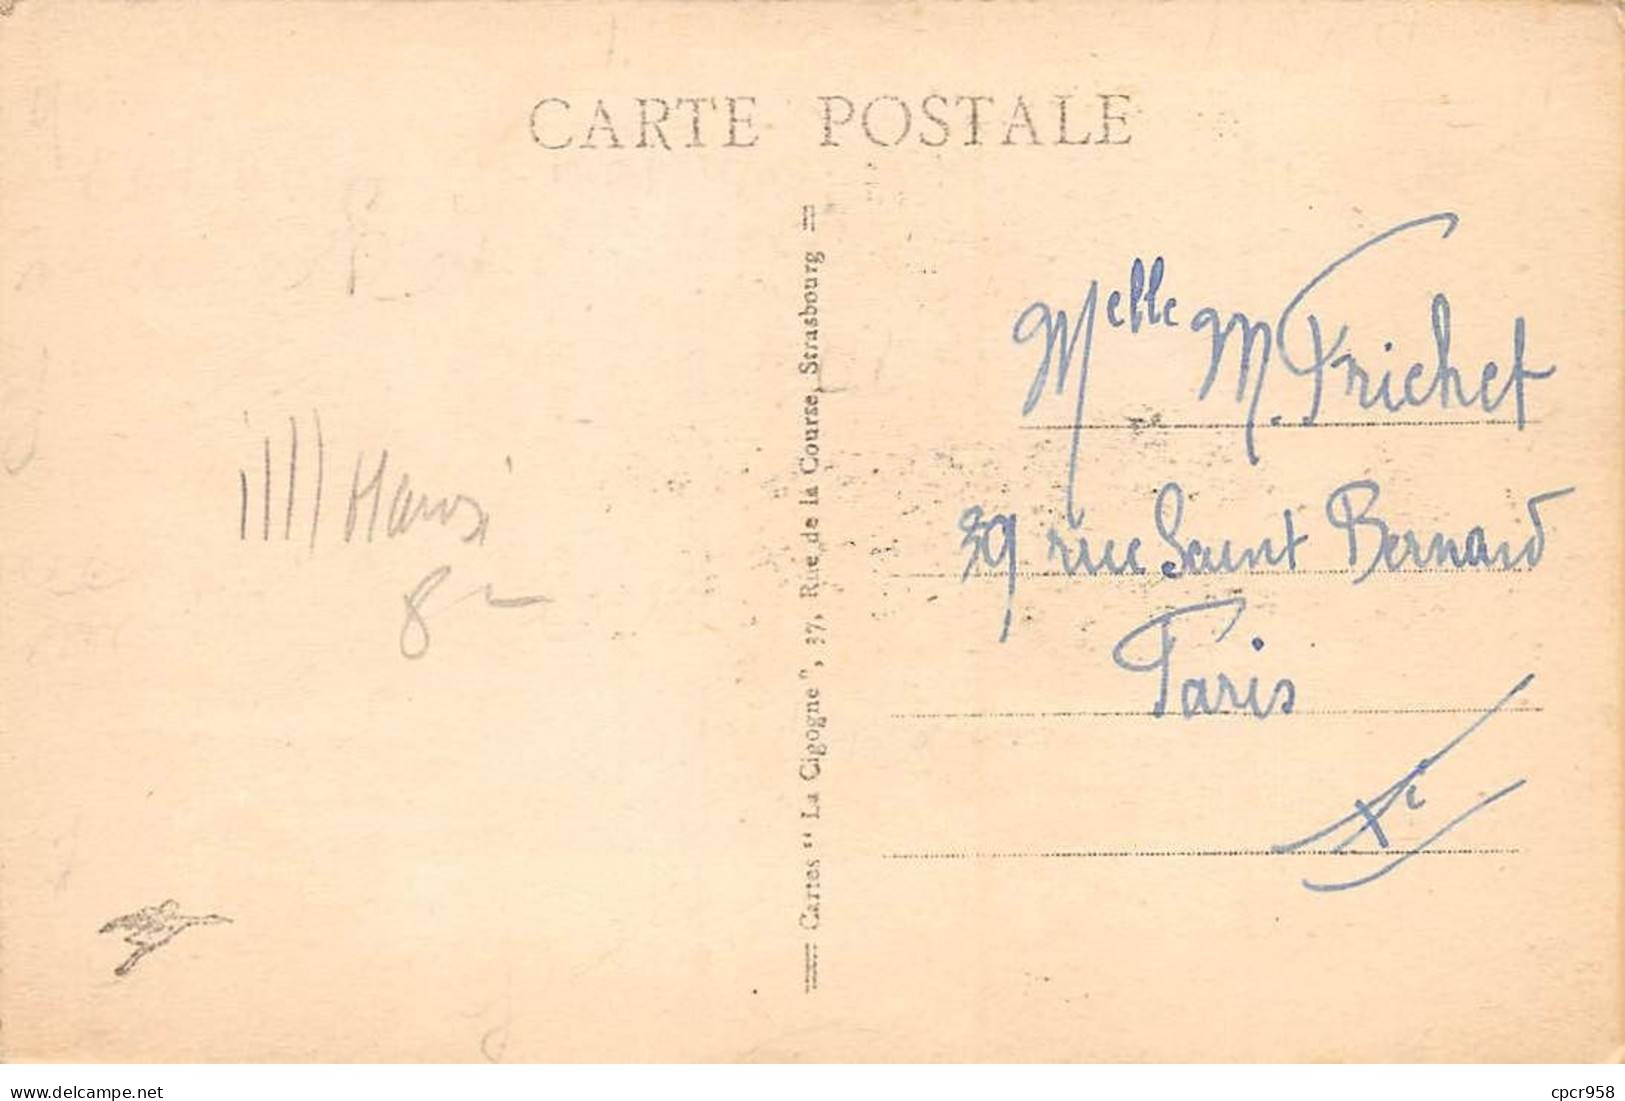 CARTE POSTALE
Cartes "La Cigogne", 37, Rue de la Course, Strasbourg
Melle M. Frichet
39 rue Saint Bernard
Paris
8
delcampe.net
cpcr958